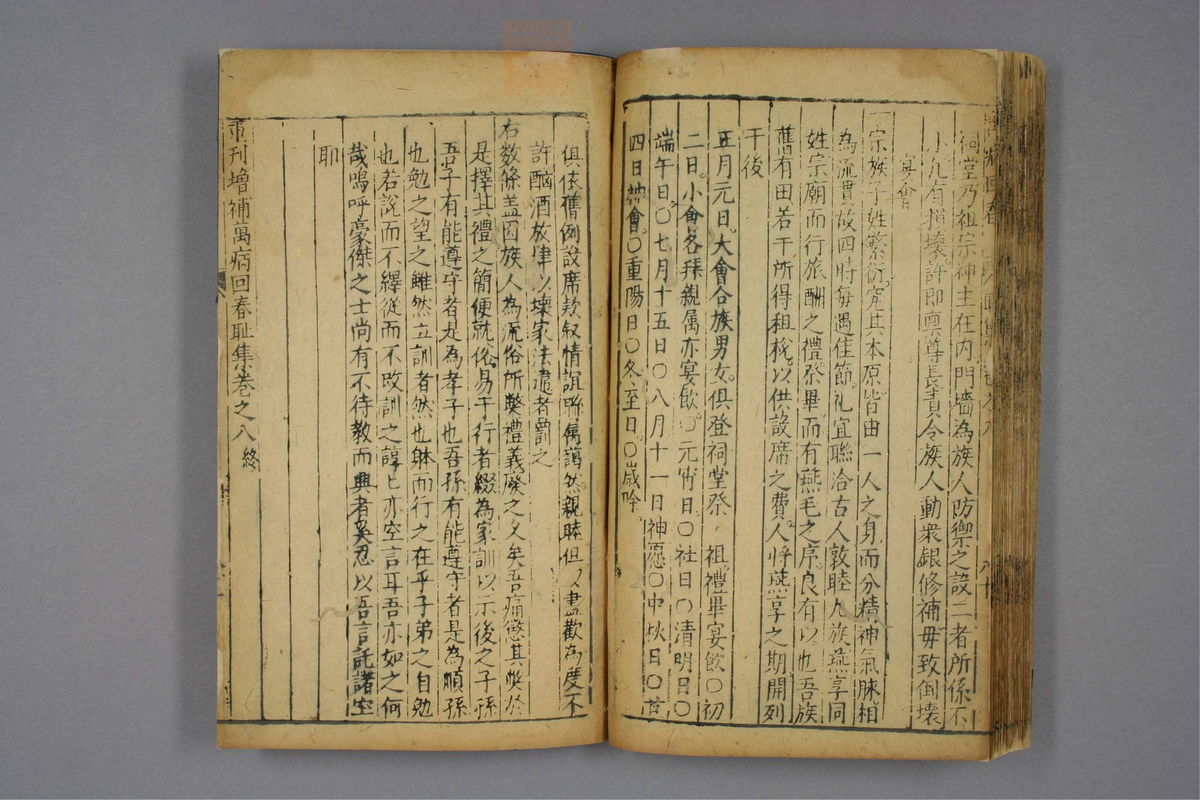 祠堂乃祖宗神主在內門墻為族人防禦之設二者所係不
小凡有損壞許即稟尊長責令族人動衆銀修補毋致倒壞
宴會
一宗族子姓繁衍窮其本原皆由一人之身而分精神氣脉相
為流貫故四時每遇佳節禮宜聯洽古人敦睦九族燕享同
姓宗廟而行旅酬之禮祭畢而有燕毛之序良有以也吾族
舊有田若干所得租稅以供設席之費人將燕享之期開列
于後
正月元日大會合族男女俱登祠堂祭 祖禮畢宴飲○初
二日小會各拜親属亦宴飲○元宵日○社日○清明日○
端午日○七月十五日○八月十一日神愿○中秋日○廿
四日神會○重陽日○冬至日○歲除
俱依舊例設席款叙情誼聯属藹然親睦但以盡歡為度不
許酗酒放肆以壞家法違者罰之
右数條盖因族人為流俗所獘禮義廢之久矣吾痛懲其獘於
是擇其禮之簡便就俗易于行者綴為家訓以示後之子孫
吾子有能遵守者是為孝子也吾孫有能遵守者是為順孫
也勉之望之雖然立訓者然也躰而行之在乎子弟之自勉
也若說而不繹從而不改訓之諄匕亦空言耳吾亦如之何
哉嗚呼豪傑之士尚有不待教而興者奚忍以吾言託諸空
耶
重刊增補萬病回春耻集卷之八終